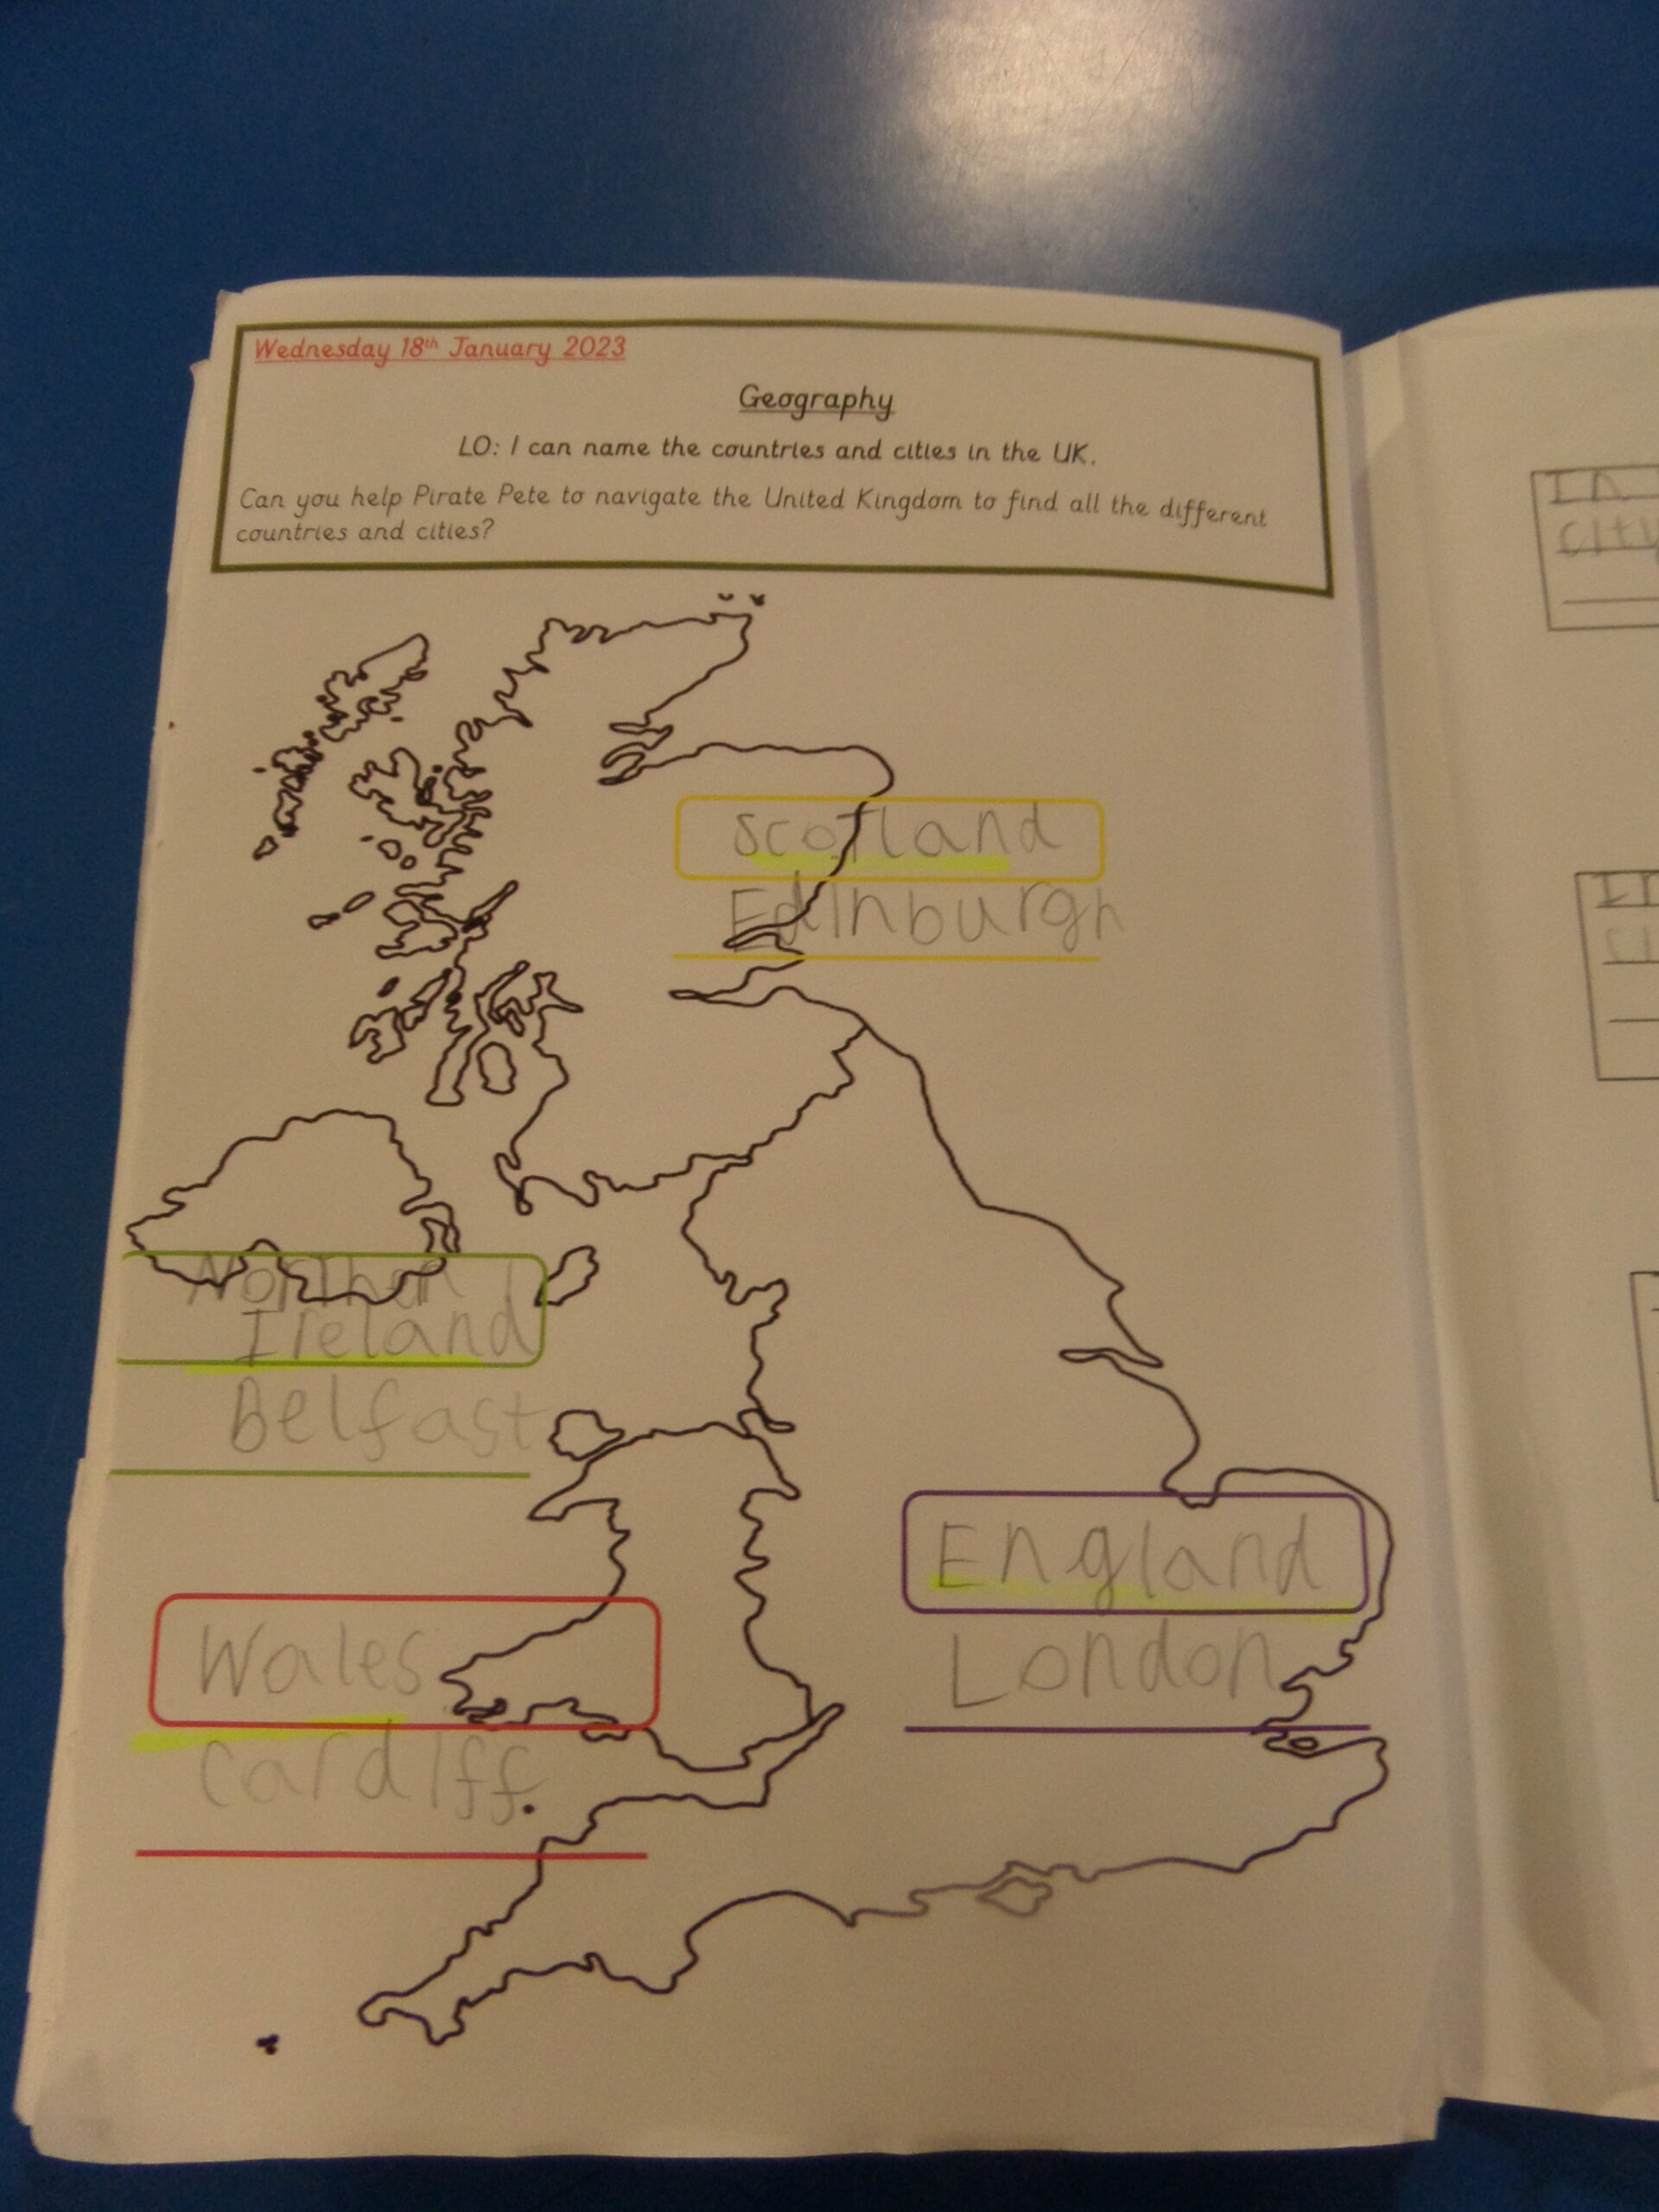 Wednesday 18th January 2023
Geography
LO: I can name the countries and cities in the UK.
Can you help Pirate Pete to navigate the United Kingdom to find all the different
countries and cities?
Scotland
Edinburgh
Northen
Ireland
Belfast
England
London
Wales
Cardiff.
In
city